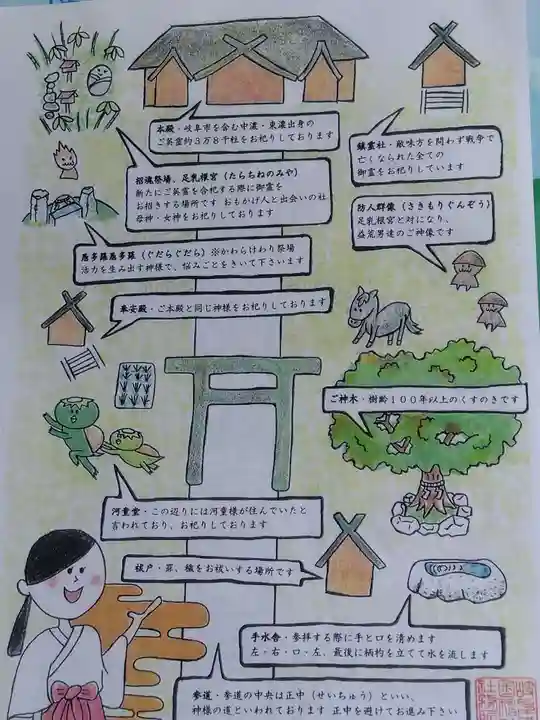 本殿・岐阜市を含む中濃・東濃出身の
ご英霊約３万８千社をお祀りしております
鎮霊社・敵味方を問わず戦争で
亡くなられた全ての
御霊をお祀りしています
招魂祭場、足乳根宮（たらちねのみや）
新たにご英霊を合祀する際に御霊を
お招きする場所です おもかげ人と出会いの社
母神・女神をお祀りしております
防人群像（さきもりぐんぞう）
足乳根宮と対になり、
益荒男達のご神像です
愚多羅愚多羅（ぐだらぐだら）※かわらけわり祭場
活力を生み出す神様で、悩みごとをきいて下さいます
奉安殿・ご本殿と同じ神様をお祀りしております
ご神木・樹齢１００年以上のくすのきです
河童堂・この辺りには河童様が住んでいたと
言われており、お祀りしております
祓戸・罪、穢をお祓いする場所です
手水舎・参拝する際に手と口を清めます
左・右・口・左、最後に柄杓を立てて水を流します
参道・参道の中央は正中（せいちゅう）といい、
神様の道といわれております 正中を避けてお進み下さい